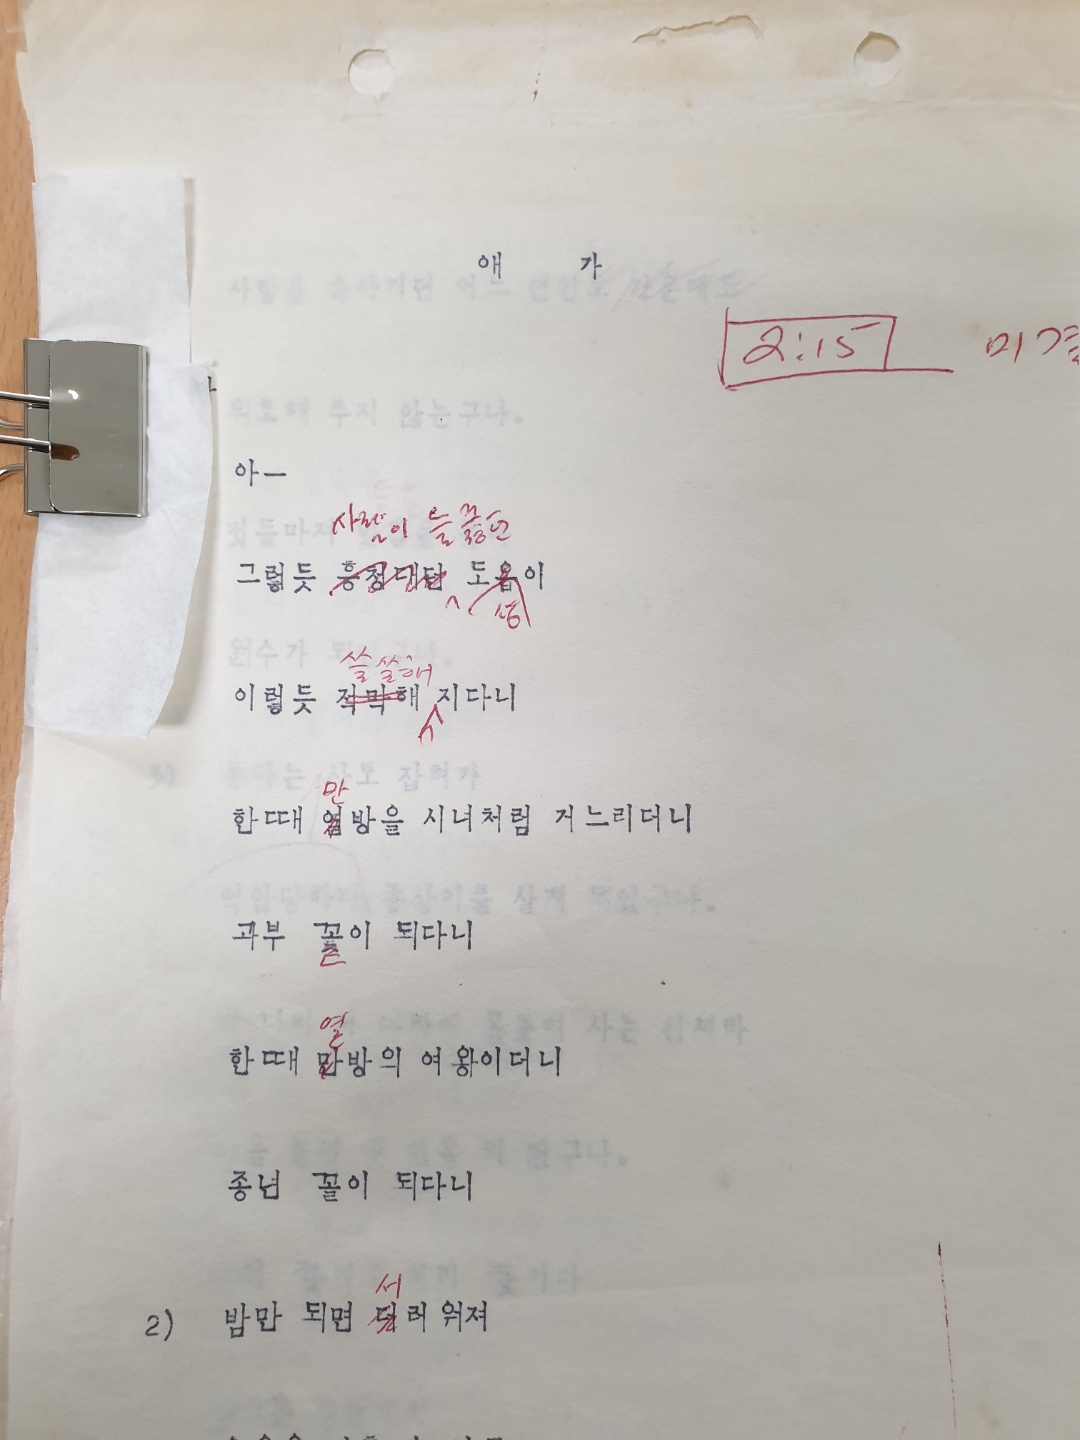 애 가
2:15
아—
사람이 들끓던
그렇듯 흥청대던 도읍이
성
쓸쓸해
이렇듯 적막해 지다니
만
한때 열방을 시녀처럼 거느리더니
과부 꼴이 되다니
열
한때 만방의 여왕이더니
종년 꼴이 되다니
서
2) 밤만 되면 되려 워져